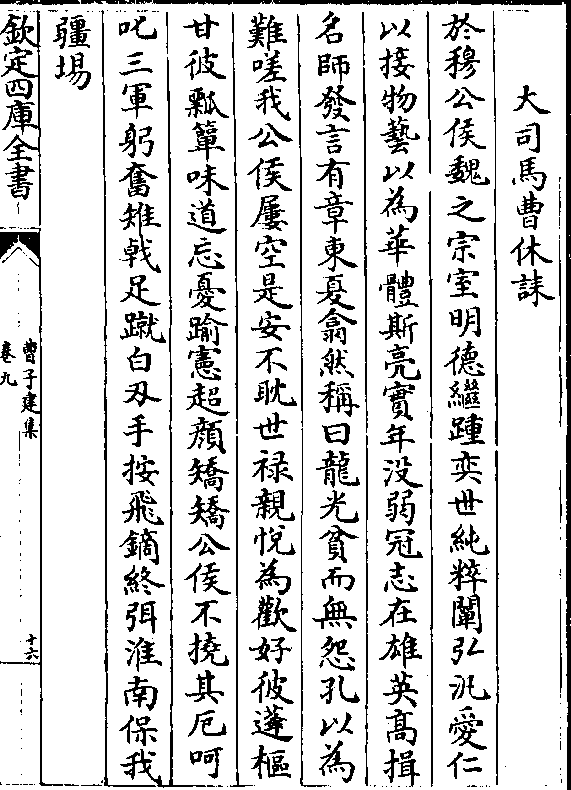 大司馬曹休誄
於穆公侯魏之宗室明德繼踵奕世純粹闡弘汎愛仁
以接物藝以為華體斯亮實年没弱冠志在雄英高揖
名師發言有章東夏翕然稱曰龍光貧而無怨孔以為
難嗟我公侯屢空是安不耽世禄親悅為歡好彼蓬樞
甘彼瓢簞味道忘憂踰憲超顔矯矯公侯不撓其厄呵
叱三軍躬奮雉戟足蹴白刃手按飛鏑終弭淮南保我
疆場
欽定四庫全書
曹子建集
卷九
十六